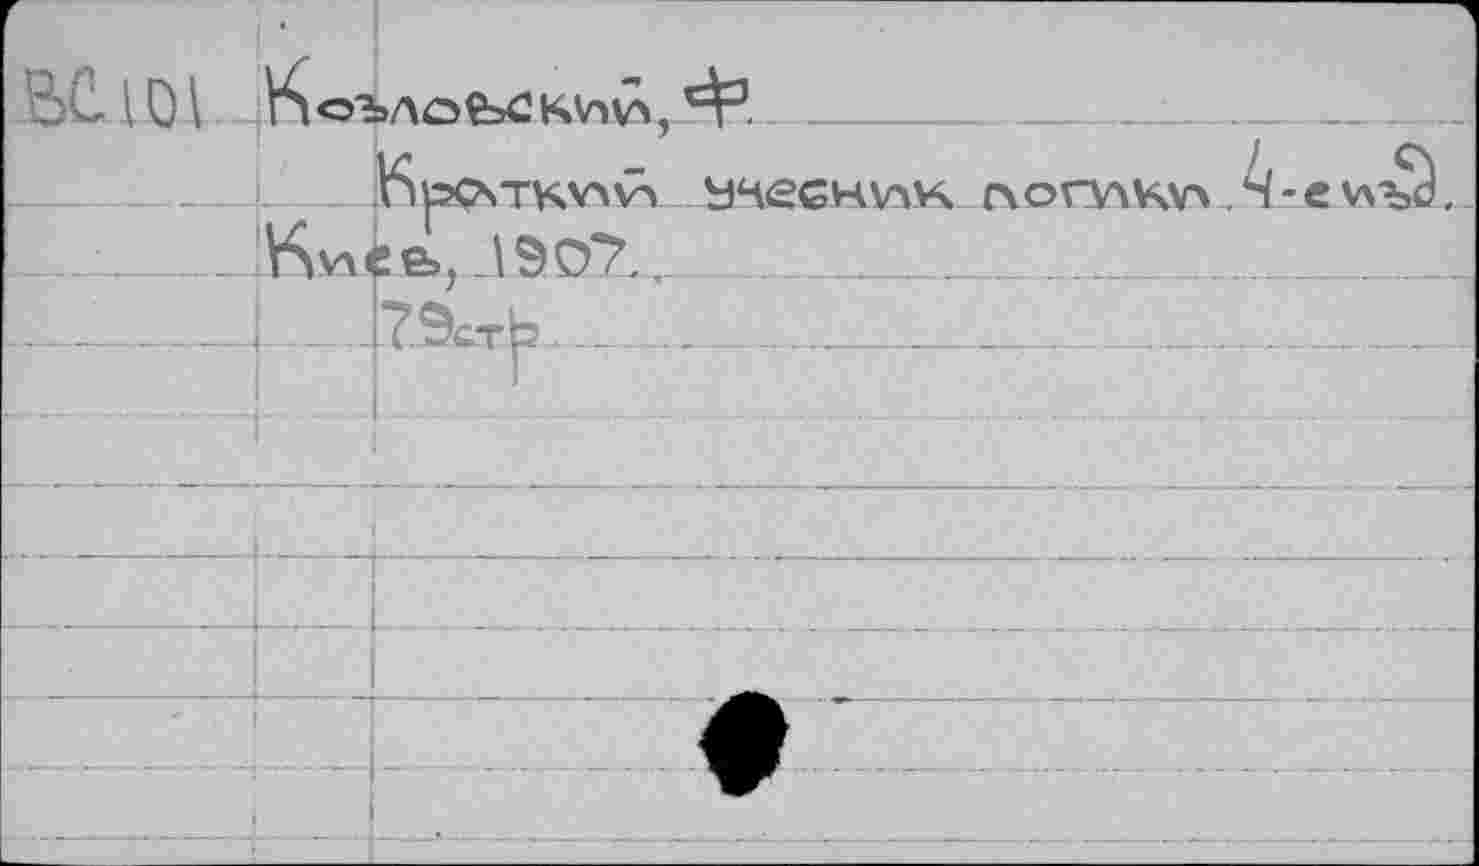 BC 101 Козловский, Ф.
Краткий учебник логики. 4-е изд.
Киев, 1907.
79стр.